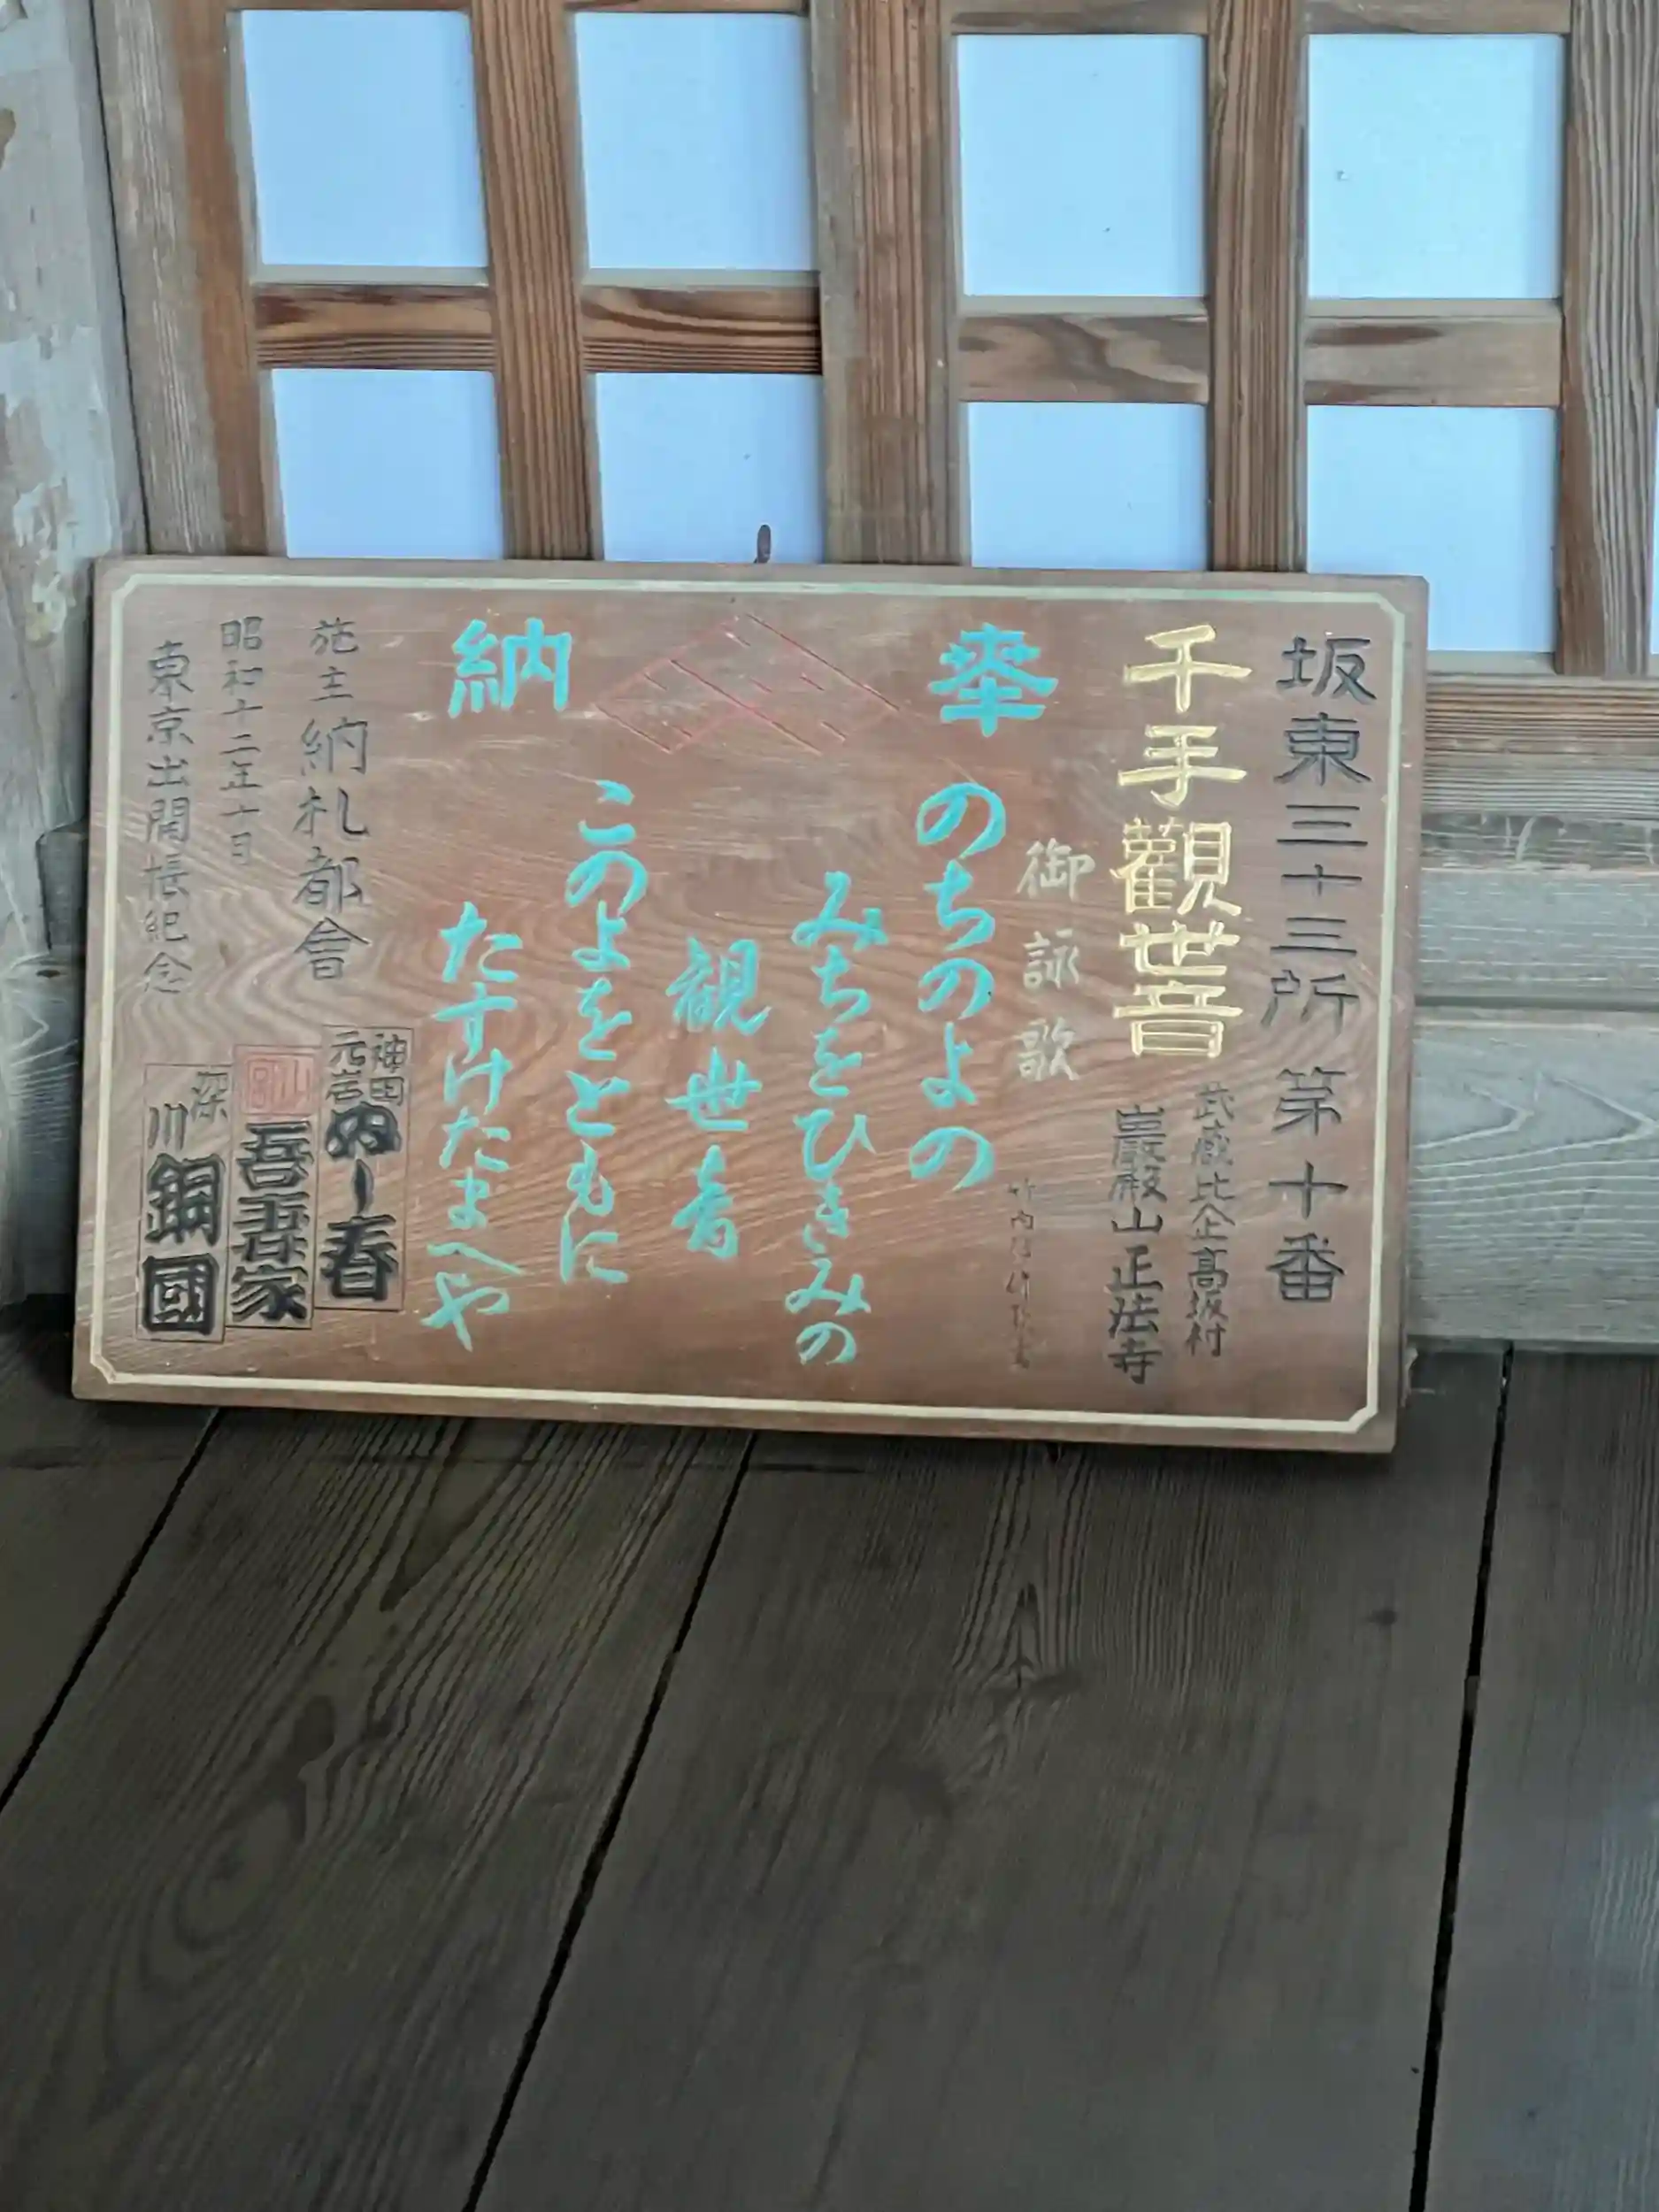 坂東三十三所 第十番
千手觀世音
武蔵比企高坂村
巌殿山正法寺
奉
納
御詠歌
のちのよの
みちをひきみの
観世音
このよをともに
たすけたまへや
施主 納札都會
昭和十二年十月
東京出開帳紀念
神田
元岩
ぬし春
吾妻家
深川
銅國